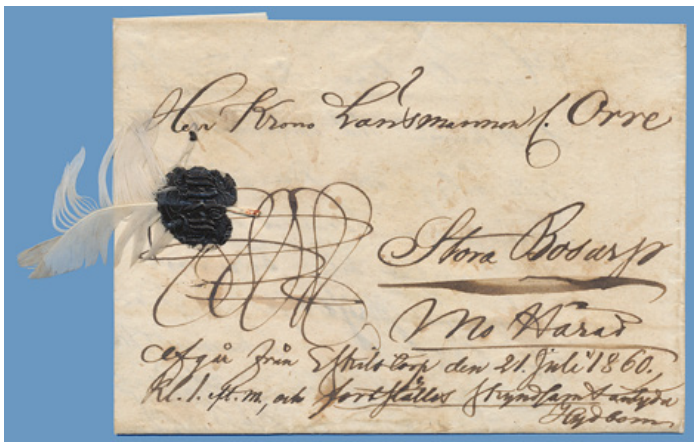 Herr Krono Länsmannen C. Orre
Stora Bosarp
Mo Härad
Afgår från Eskilstorp den 21. Juli 1860,
Kl. 1. eft.m, och fortställes skyndsamt